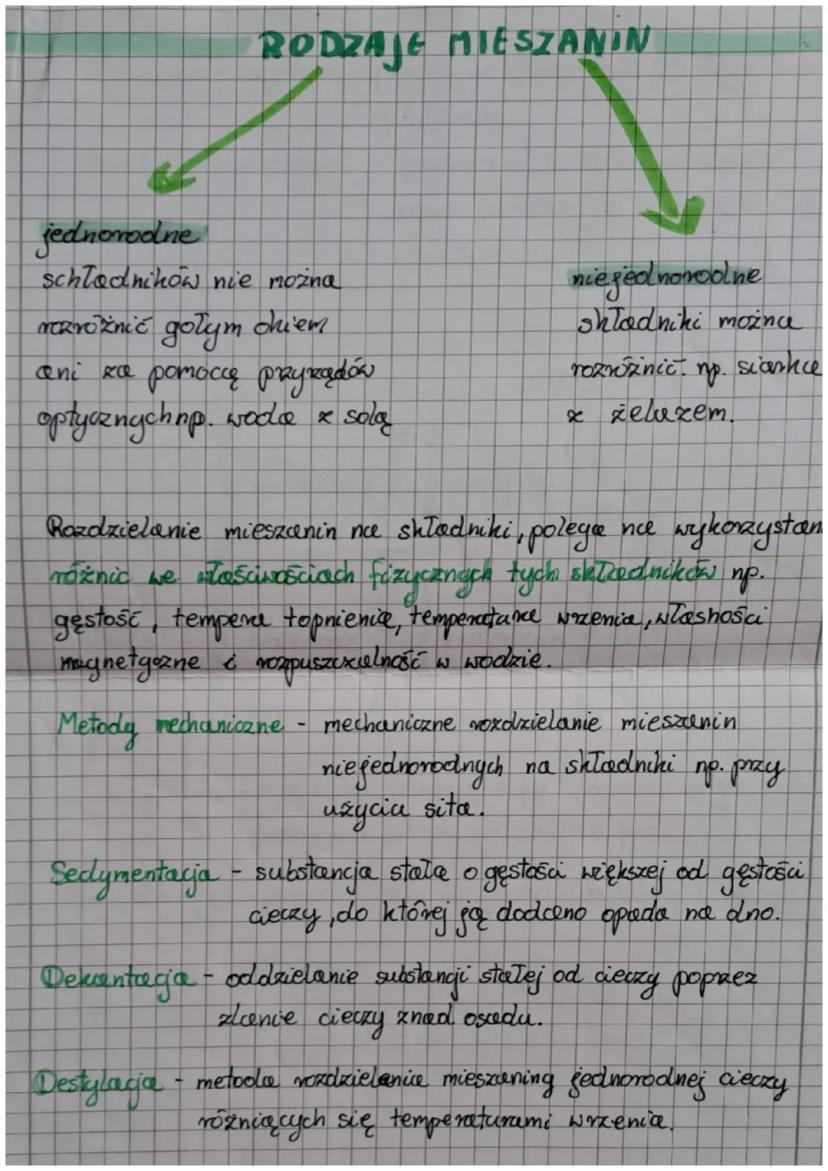 RODZAJE MIESZANIN
jednorodne
schładników nie można
rozróżnić gołym okiem
ani za pomocą przyrządów
optycznych np. woda z solą
niejednorodne
składniki można
rozróżnić. np. siarka
z żelazem.
Rozdzielanie mieszanin na składniki, polega na wykorzystan
różnic we właściwościach fizycznych tych składników np.
gęstość, tempera topnienia, temperatura wrzenia, własności
magnetyczne i rozpuszczalność w wodzie.
Metody mechaniczne - mechaniczne rozdzielanie mieszanin
niejednorodnych na składniki np. przy
użyciu sita.
Sedymentacja - substancja stała o gęstości większej od gęstości
cieczy, do której ją dodano opada na dno.
Dekantacja - oddzielanie substancji stałej od cieczy poprzez
zlanie cieczy znad osadu.
Destylacja - metoda rozdzielania mieszaniny jednorodnej cieczy
różniących się temperaturami wrzenia.